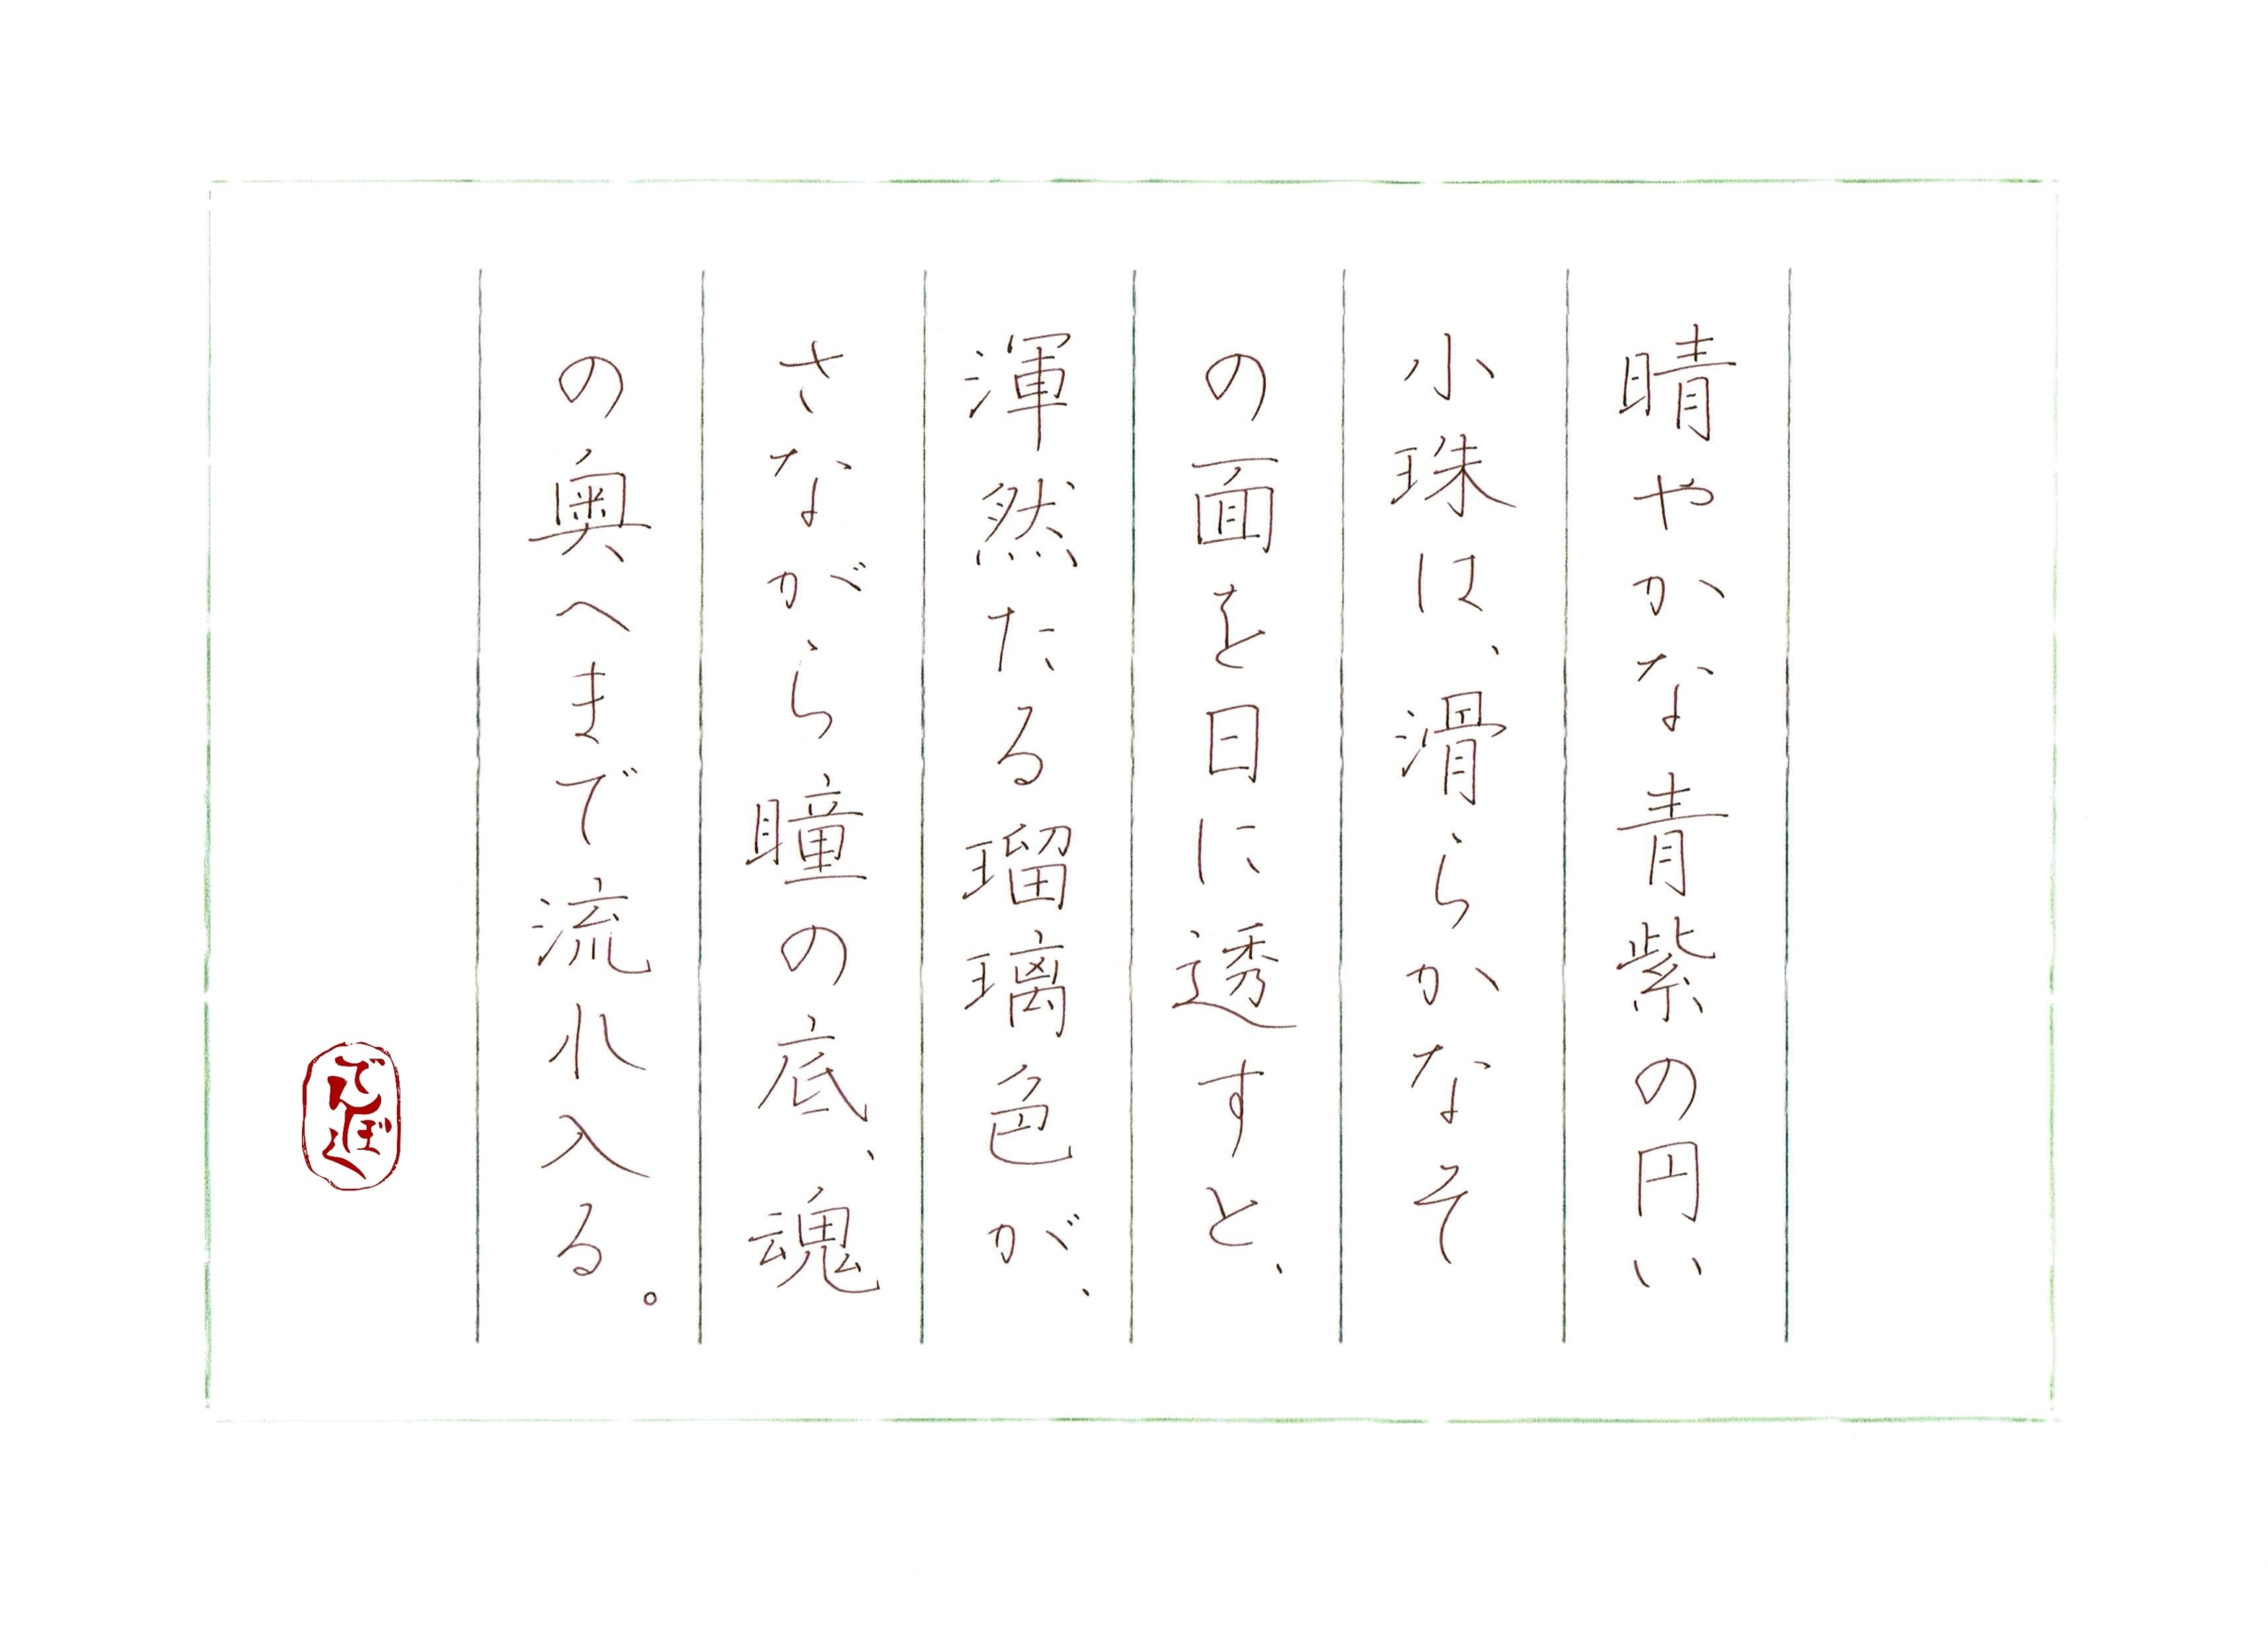 晴やかな青紫の円い
小珠は、滑らかなそ
の面を日に透すと、
渾然たる瑠璃色が、
さながら瞳の底、魂
の奥へまで流れ入る。
でんぼく